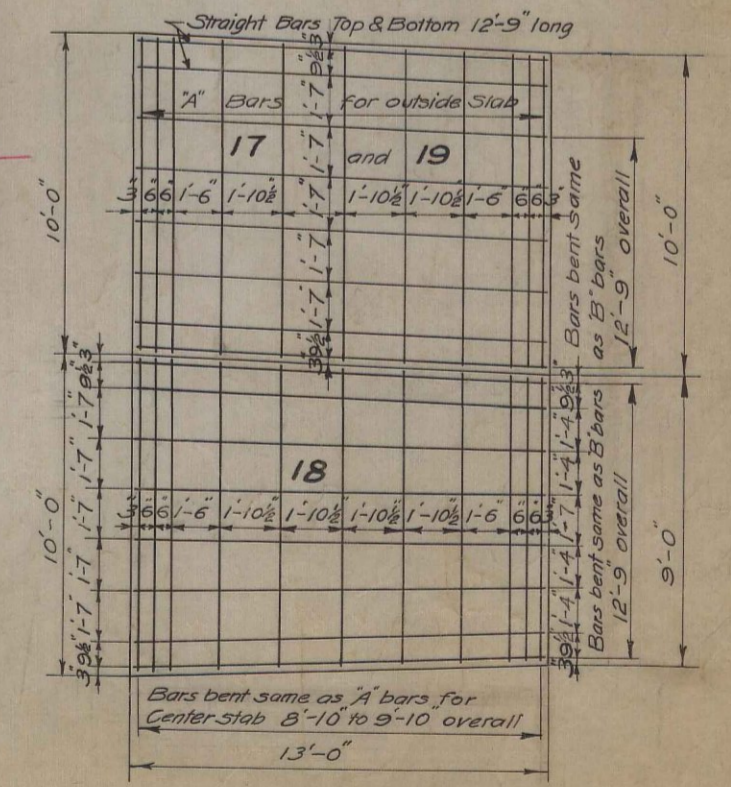 Straight Bars Top & Bottom 12'-9" long
3"
9½"
1'-7"
"A" Bars for outside Slab
17 and 19
1'-7"
3" 6" 6" 1'-6" 1'-10½" 1'-10½" 1'-10½" 1'-6" 6" 6" 3"
1'-7"
1'-7"
1'-7"
9½"
3"
10'-0"
10'-0"
Bars bent same
as "B" bars
12'-9" overall
3"
9½"
1'-7"
1'-7"
1'-7"
1'-7"
1'-7"
9½"
3"
10'-0"
18
3" 6" 6" 1'-6" 1'-10½" 1'-10½" 1'-10½" 1'-10½" 1'-6" 6" 6" 3"
3"
9½"
1'-4"
1'-4"
1'-7"
1'-4"
1'-4"
9½"
3"
Bars bent same as "B" bars
12'-9" overall
9'-0"
Bars bent same as "A" bars for
Center slab 8'-10" to 9'-10" overall
13'-0"